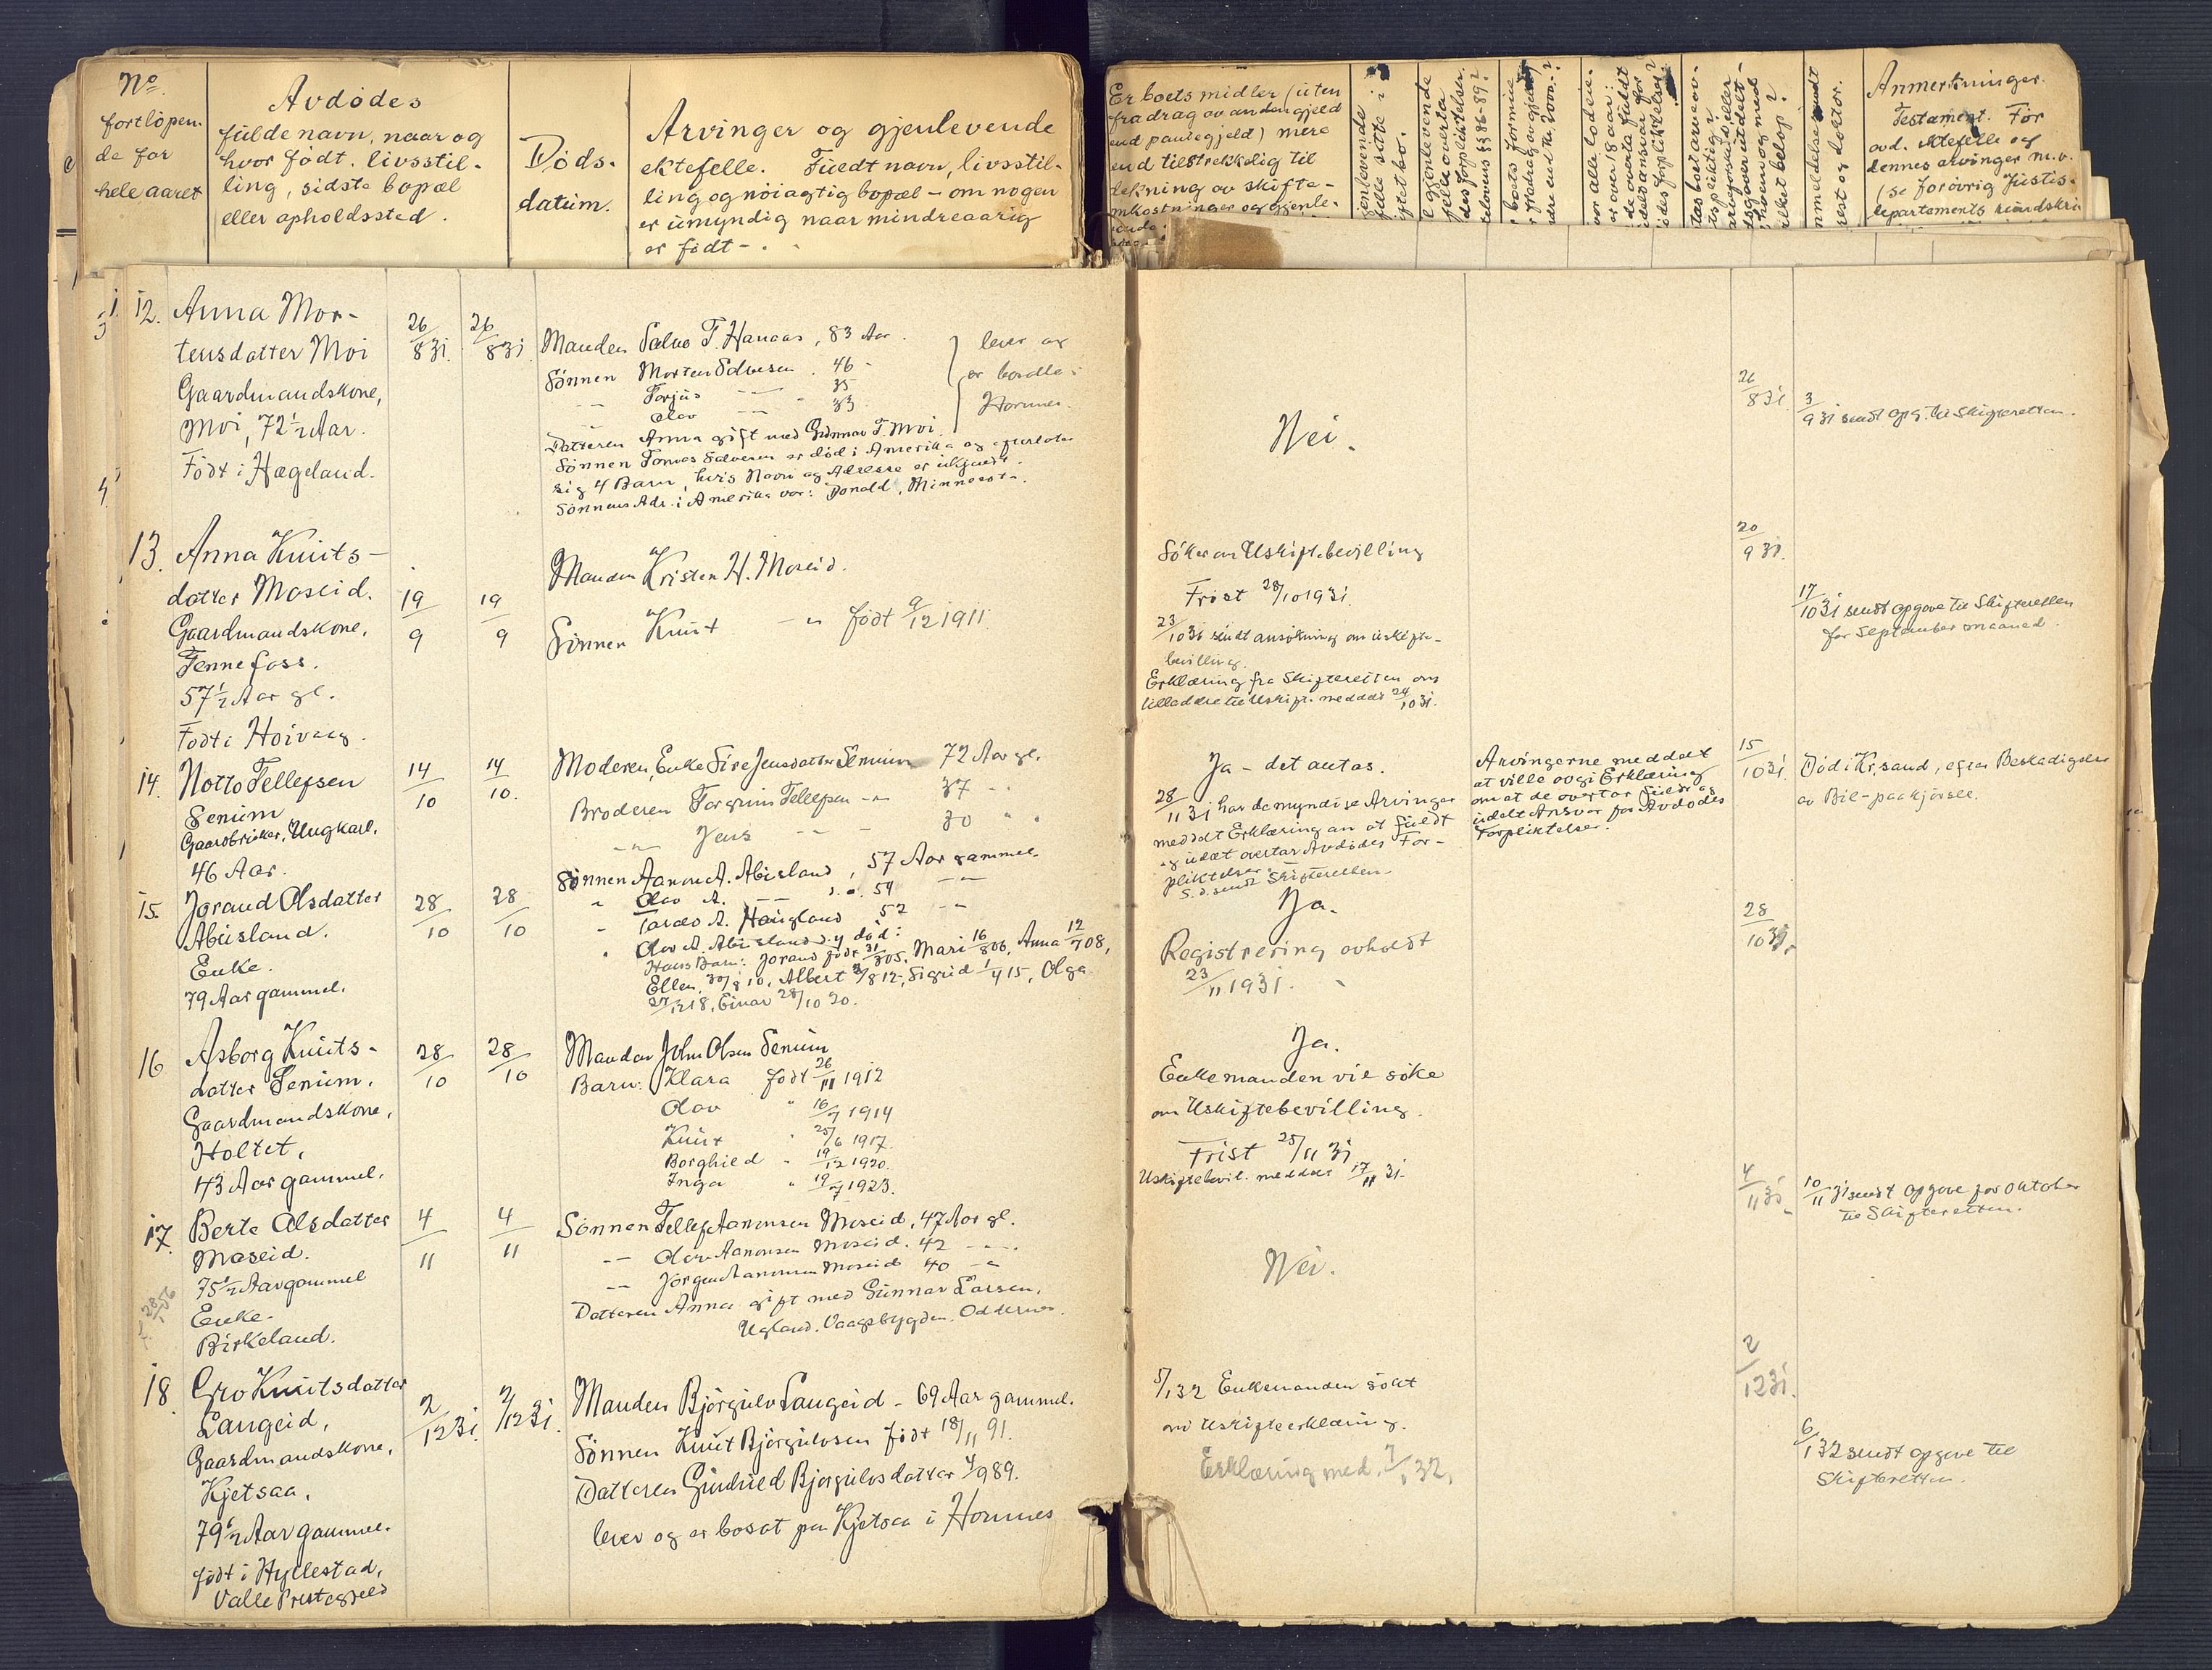 No.
fortløpen-
de for
hele aaret
Avdødes
fulde navn, naar og
hvor født. livsstil-
ling, sidste bopæl
eller opholdssted.
Døds-
datum.
Arvinger og gjenlevende
ektefelle. Fuldt navn, livsstil-
ling og nøiagtig bopæl – om nogen
er umyndig naar mindreaarig
er født –.
Er boets midler (uten
fradrag av anden gjeld
end pantegjeld) mere
end tilstrekkelig til
dekning av skifte-
omkostninger og gjenle-
Anmerkninger.
Testament. Før
avd. ektefelle og
dennes arvinger m.v.
(se forøvrig Justis-
departements rundskri
12. Anna Mor-
tensdatter Moi
Gaardmandskone,
Moi, 72½ Aar.
Født i Hægeland.
26/8 31. 26/8 31
Manden Salve T. Hanaas, 83 Aar.
Sønnen Morten Salvesen. 46 -
-- Torjus -- 35
-- Olav -- 33
lever og
er bosatte i
Hornnes.
Datteren Anna gift med Gunnar T. Moi.
Sønnen Tomas Salvesen er død i Amerika og efterlater
sig 4 Barn, hvis Navn og Adresse er ukjendt.
Sønnens Adr. i Amerika var: Donald, Minnesot.
Nei.
26/8 31
3/9 31 sendt opg. til Skifteretten.
13. Anna Knuts-
datter Moseid.
Gaardmandskone,
Fennefoss.
57½ Aar gl.
Født i Høivaag.
19/9 19/9
Manden Kristen H. Moseid.
Sønnen Knut -"- født 9/12 1911
Søker om Uskiftebevilling
Frist 28/10 1931.
23/10 31 sendt ansøkning om uskifte-
bevilling.
Erklæring fra Skifteretten om
tilladelse til Uskift. meddelt 24/10 31.
20/9 31.
17/10 31 sendt opgave til Skifteretten
for September maaned.
14. Notto Tellefsen
Senum
Gaardbruker, Ungkarl.
46 Aar.
14/10 14/10.
Moderen, Enke Sire Jensdatter Senum 72 Aar gl.
Broderen Torgrim Tellefsen -"- 37 - "
-"- Jens - - - 30 " "
Ja – det antas.
28/11 31 har de myndige Arvinger
meddelt Erklæring om at fuldt
og udelt overtar Avdødes For-
pliktelser.
S.d. sendt Skifteretten.
Arvingerne meddelt
at ville avgi Erklæring
om at de overtar fuldt og
udelt Ansvar for Avdødes
Forpliktelser.
15/10 31.
Død i Kr.sand, efter Beskadigelse
av Bil-paakjørsel.
15. Jorand Olsdatter
Abusland.
Enke.
79 Aar gammel.
28/10 28/10
Sønnen Aanon A. Abusland, 57 Aar gammel.
" Olav A. -- 54 --
" Tarald A. Haugland 52 --
" Olav A. Abusland d.y. død:
Hans Barn: Jorand født 31/3 05, Mari 16/8 06, Anna 12/7 08,
Ellen 30/8 10, Albert 3/8 12, Sigrid 1/4 15, Olga
27/12 18, Einar 28/10 20.
Ja.
Registrering avholdt
23/11 1931.
28/10 31.
16 Asborg Knuts-
datter Senum.
Gaardmandskone,
Holtet,
43 Aar gammel.
28/10 28/10
Manden John Olsen Senum
Barn: Klara født 26/11 1912
Olav " 16/7 1914
Knut " 25/6 1917.
Borghild " 19/12 1920.
Inga " 19/7 1923.
Ja.
Enkemanden vil søke
om Uskiftebevilling.
Frist 25/11 31
Uskiftebevil. meddelt 17/11 31.
17. Berte Olsdatter
Moseid.
75½ Aar gammel
Enke.
Birkeland.
4/11 4/11
Sønnen Tellef Aanonsen Moseid, 47 Aar gl.
-- Olav Aanonsen Moseid. 42 - - .
-- Jørgen Aanonsen Moseid 40 -"
Datteren Anna gift med Gunnar Larsen,
Ugland. Vaagsbygden. Oddernes.
Nei.
4/11 31.
10/11 31 sendt opgave for Oktober
til Skifteretten.
18. Gro Knutsdatter
Langeid,
Gaardmandskone,
Kjetsaa,
79½ Aar gammel.
født i Hyllestad,
Valle Prestegjeld
2/12 31. 2/12 31.
Manden Bjørgulv Langeid – 69 Aar gammel.
Sønnen Knut Bjørgulvsen født 18/11 91.
Datteren Gunhild Bjørgulvsdatter 4/9 89.
lever og er bosat paa Kjetsaa i Hornnes
5/1 32 Enkemanden søkt
om Uskifteerklæring.
Erklæring med. 7/1 32.
2/12 31.
6/1 32 sendt opgave til
Skifteretten.